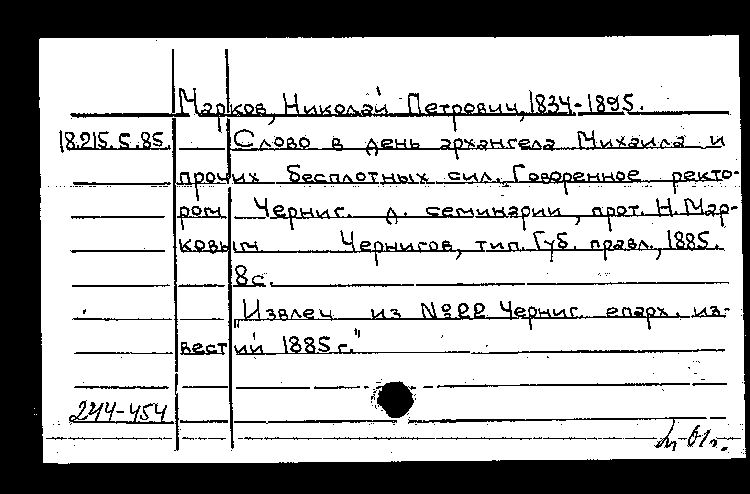 Марков, Николай Петрович, 1834-1895.
18.215.5.85. Слово в день архангела Михаила и
прочих бесплотных сил. Говоренное ректо-
ром Черниг. д. семинарии, прот. Н. Мар-
ковым. Чернигов, тип. Губ. правл., 1885.
8 с.
"Извлеч из №22 Черниг. епарх. из-
вестий 1885 г."
244-454